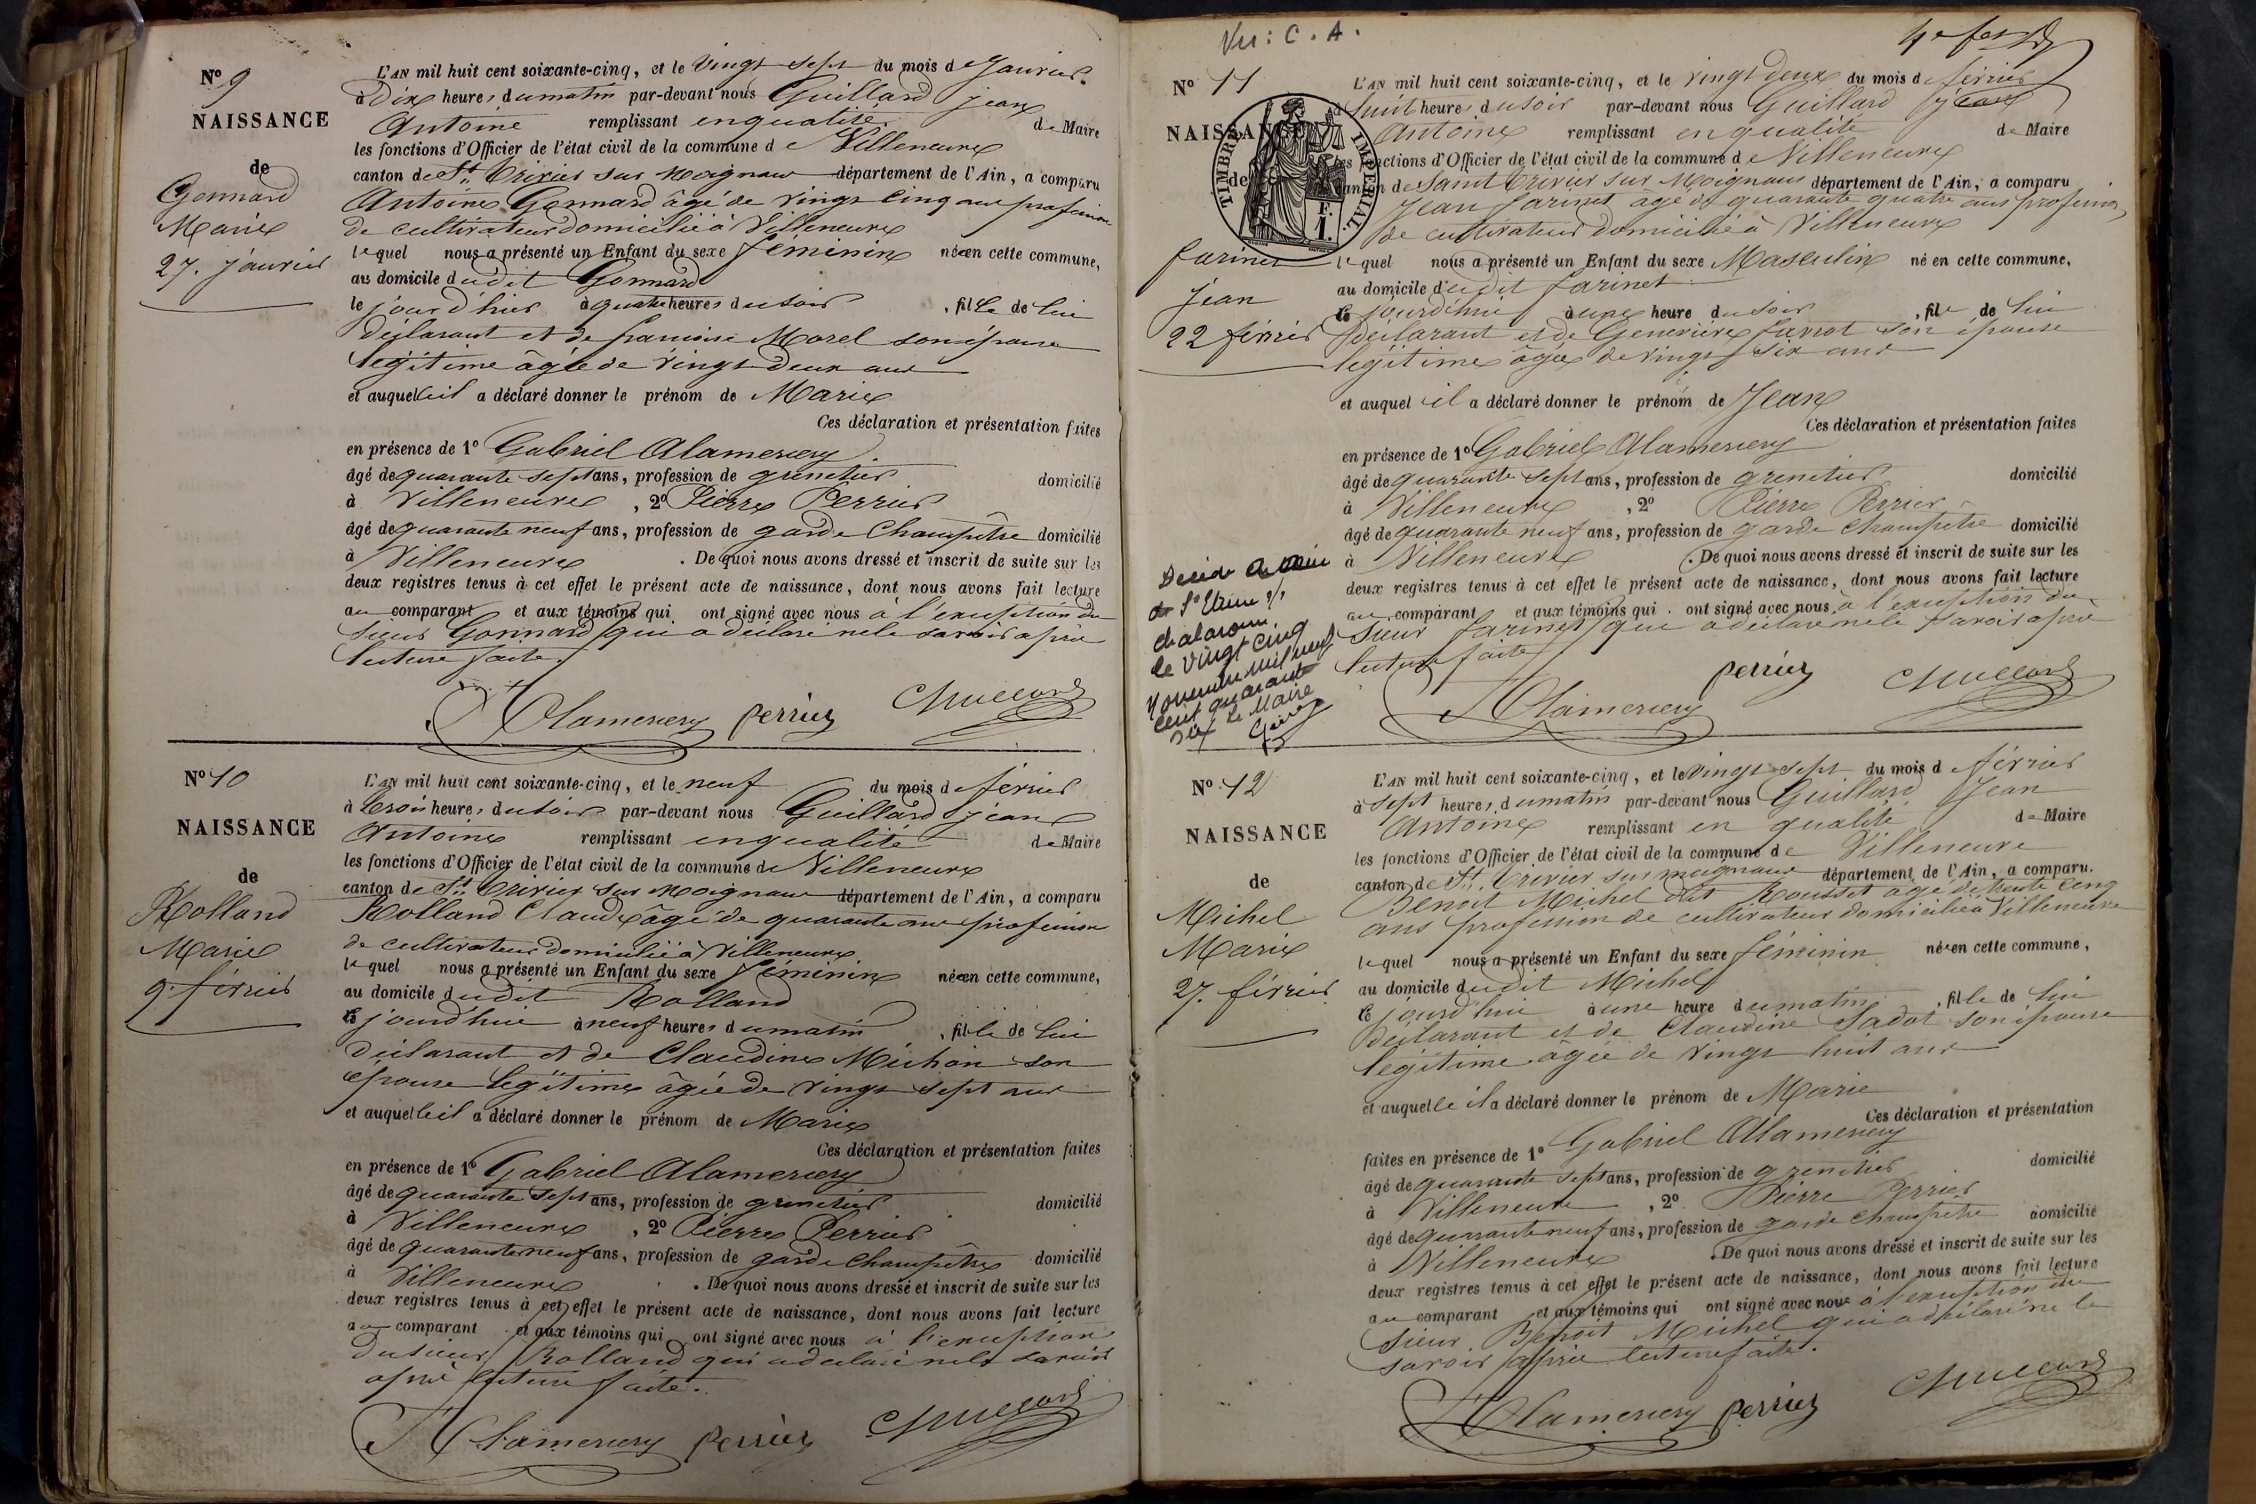 N° 9
NAISSANCE
de
Gonnard
Marie
27. janvier
L'AN mil huit cent soixante-cinq, et le vingt sept du mois de Janvier
à Dix heures du matin par-devant nous Guillard jean
Antoine remplissant en qualité de Maire
les fonctions d'Officier de l'état civil de la commune de Villeneuve
canton de St. Trivier sur Moignans département de l'Ain, a comparu
Antoine Gonnard âgé de vingt cinq ans profession
de cultivateur domicilié à Villeneuve
lequel nous a présenté un Enfant du sexe féminin née en cette commune,
au domicile dudit Gonnard
le jour d'hier à quatre heures du soir, fille de lui
déclarant et de francoise Morel son épouse
légitime âgée de vingt deux ans
et auquelle il a déclaré donner le prénom de Marie
Ces déclaration et présentation faites
en présence de 1° Gabriel Alamercery
âgé de quarante sept ans, profession de grenetier domicilié
à Villeneuve, 2° Pierre Perrier
âgé de quarante neuf ans, profession de garde Champêtre domicilié
à Villeneuve. De quoi nous avons dressé et inscrit de suite sur les
deux registres tenus à cet effet le présent acte de naissance, dont nous avons fait lecture
au comparant et aux témoins qui ont signé avec nous à l'exception du
sieur Gonnard qui a déclaré ne le savoir après
lecture faite.
Alamercery perrier Guillard
N° 10
NAISSANCE
de
Rolland
Marie
9 février
L'AN mil huit cent soixante-cinq, et le neuf du mois de février
à trois heures du soir par-devant nous Guillard jean
Antoine remplissant en qualité de Maire
les fonctions d'Officier de l'état civil de la commune de Villeneuve
canton de St. Trivier sur Moignans département de l'Ain, a comparu
Rolland Claude âgé de quarante ans profession
de cultivateur domicilié à Villeneuve
lequel nous a présenté un Enfant du sexe féminin née en cette commune,
au domicile dudit Rolland
le jourd'hui à neuf heures du matin, fille de lui
déclarant et de Claudine Michon son
épouse légitime âgée de vingt sept ans
et auquelle il a déclaré donner le prénom de Marie
Ces déclaration et présentation faites
en présence de 1° Gabriel Alamercery
âgé de quarante sept ans, profession de grenetier domicilié
à Villeneuve, 2° Pierre Perrier
âgé de quarante neuf ans, profession de garde Champêtre domicilié
à Villeneuve. De quoi nous avons dressé et inscrit de suite sur les
deux registres tenus à cet effet le présent acte de naissance, dont nous avons fait lecture
au comparant et aux témoins qui ont signé avec nous à l'exception
du sieur Rolland qui a déclaré ne le savoir
après lecture faite.
Alamercery perrier Guillard
Vu : C. A.
4e
N° 11
NAISSANCE
de
TIMBRE IMPERIAL.
F.
1.
farinet
Jean
22 février
L'AN mil huit cent soixante-cinq, et le vingt deux du mois de février
à huit heures du soir par-devant nous Guillard jean
Antoine remplissant en qualité de Maire
les fonctions d'Officier de l'état civil de la commune de Villeneuve
canton de Saint Trivier sur Moignans département de l'Ain, a comparu
Jean farinet âgé de quarante quatre ans profession
de cultivateur domicilié à Villeneuve
lequel nous a présenté un Enfant du sexe Masculin né en cette commune,
au domicile dudit farinet
le jourd'hui à une heure du soir, fils de lui
déclarant et de Geneviève son épouse
légitime âgée de vingt six ans
et auquel il a déclaré donner le prénom de Jean
Ces déclaration et présentation faites
en présence de 1° Gabriel Alamercery
âgé de quarante sept ans, profession de grenetier domicilié
à Villeneuve, 2° Pierre Perrier
âgé de quarante neuf ans, profession de garde champêtre domicilié
à Villeneuve. De quoi nous avons dressé et inscrit de suite sur les
deux registres tenus à cet effet le présent acte de naissance, dont nous avons fait lecture
au comparant et aux témoins qui ont signé avec nous à l'exception du
sieur farinet qui a déclaré ne le savoir après
lecture faite
Alamercery perrier Guillard
Décédé
chalaronne
le vingt cinq
novembre mil neuf
cent quarante
six Le Maire
N° 12
NAISSANCE
de
Michel
Marie
27. février
L'AN mil huit cent soixante-cinq, et le vingt sept du mois de février
à sept heures du matin par-devant nous Guillard Jean
Antoine remplissant en qualité de Maire
les fonctions d'Officier de l'état civil de la commune de Villeneuve
canton de St. Trivier sur moignans département de l'Ain, a comparu.
Benoit Michel dit Rousset âgé de trente cinq
ans profession de cultivateur domicilié à Villeneuve
lequel nous a présenté un Enfant du sexe féminin née en cette commune,
au domicile dudit Michel
le jourd'hui à une heure du matin, fille de lui
déclarant et de Claudine Sadot son épouse
légitime âgée de vingt huit ans
et auquelle il a déclaré donner le prénom de Marie
Ces déclaration et présentation
faites en présence de 1° Gabriel Alamercery
âgé de quarante sept ans, profession de grenetier domicilié
à Villeneuve, 2° Pierre Perrier
âgé de quarante neuf ans, profession de garde champêtre domicilié
à Villeneuve. De quoi nous avons dressé et inscrit de suite sur les
deux registres tenus à cet effet le présent acte de naissance, dont nous avons fait lecture
au comparant et aux témoins qui ont signé avec nous à l'exception du
sieur Benoit Michel qui a déclaré ne le
savoir après lecture faite.
Alamercery perrier Guillard